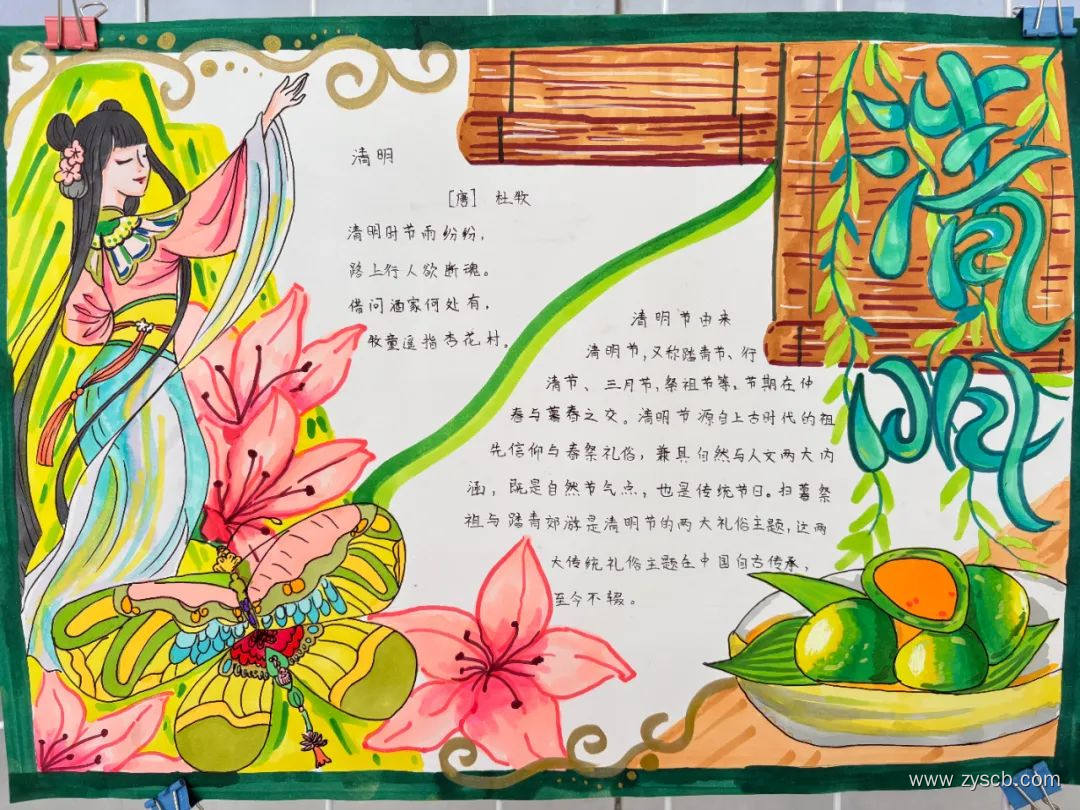 清明
[唐] 杜牧
清明时节雨纷纷，
路上行人欲断魂。
借问酒家何处有，
牧童遥指杏花村。
清明
清明节由来
清明节，又称踏青节、行
清节、三月节，祭祖节等，节期在仲
春与暮春之交。清明节源自上古时代的祖
先信仰与春祭礼俗，兼具自然与人文两大内
涵，既是自然节气点，也是传统节日。扫墓祭
祖与踏青郊游是清明节的两大礼俗主题，这两
大传统礼俗主题在中国自古传承，
至今不辍。
www.zyscb.com